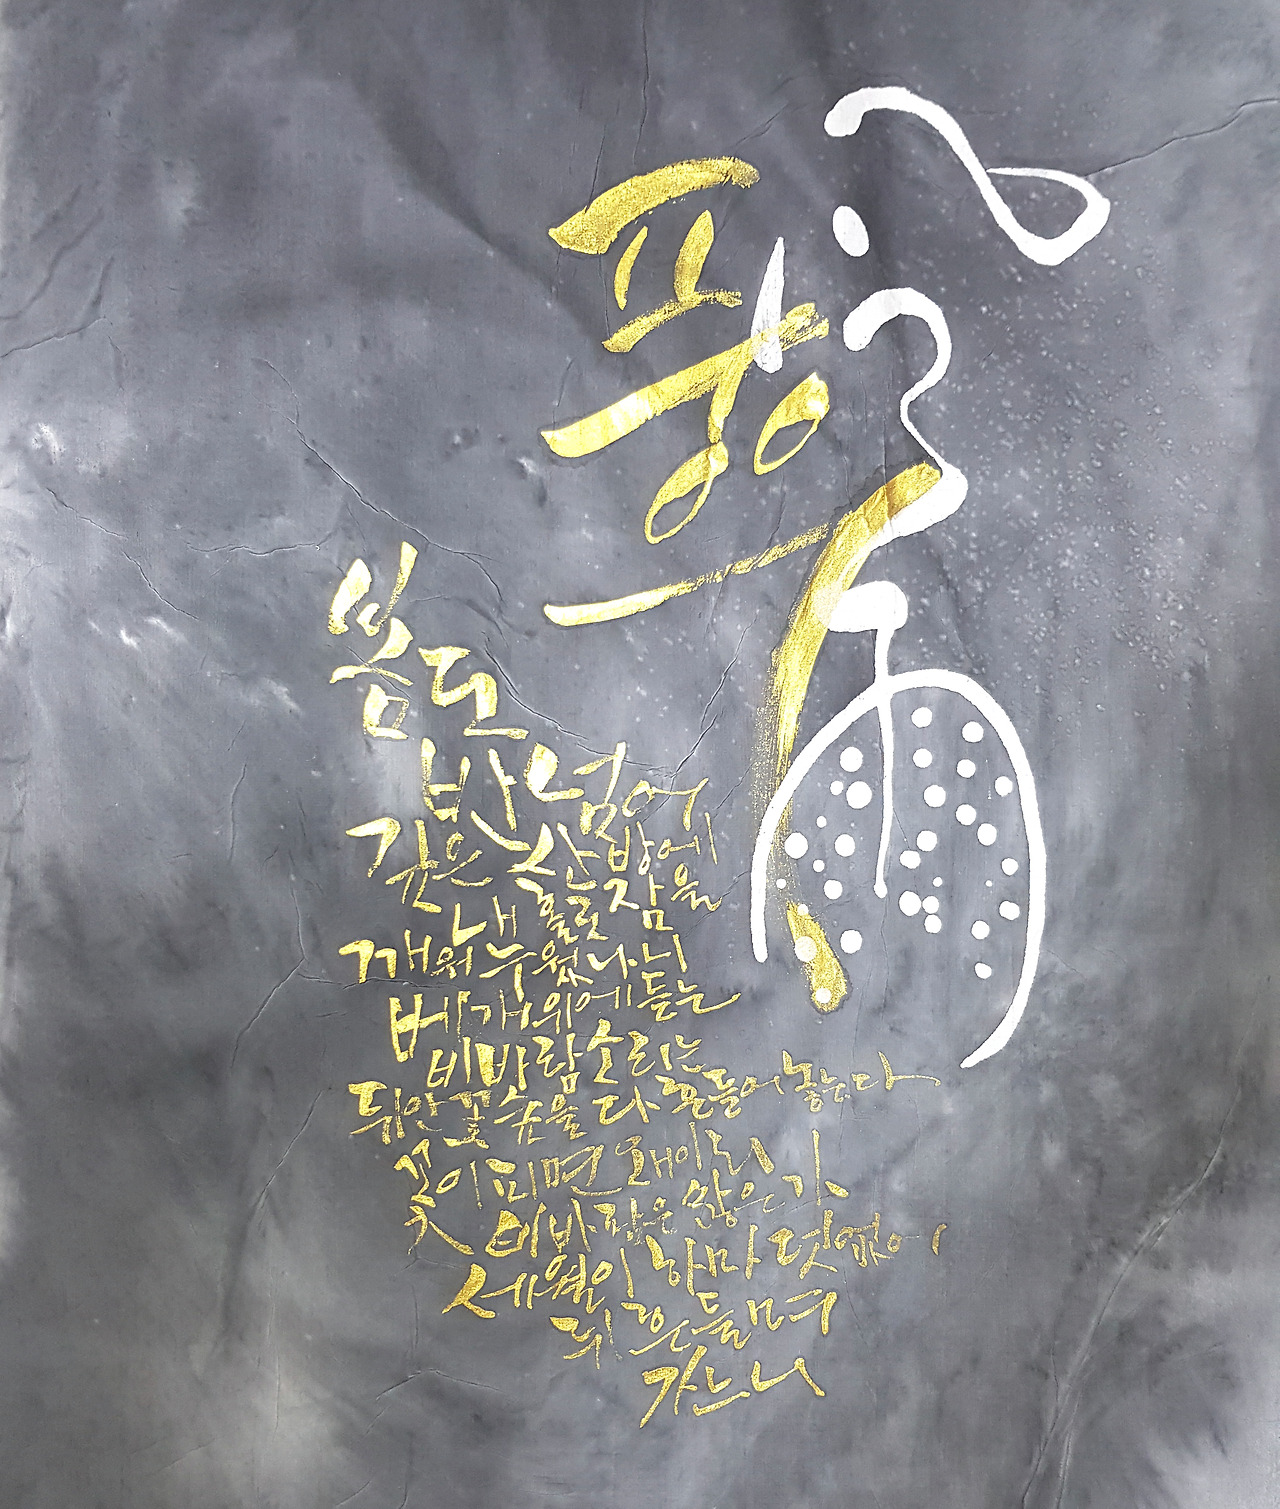 풍우
風雨
봄도
반 넘어
깊은 산방에
잠을
깨워 누웠나니
베개 위에 듣는
비바람 소리는
뒤안 꽃숲을 다 흔들어 놓는다
꽃이 피면 왜 이리
비바람은 많은가
세월이 하마 덧없이
뒤흔들며
가느니